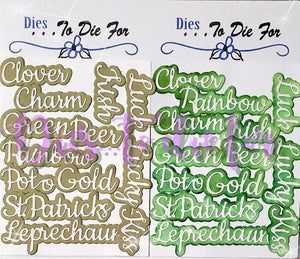 Dies
...To Die For
Clover
Charm
Irish
Luck
Green Beer
Rainbow
Pot o Gold
Lucky
Kiss
St. Patricks
Leprechaun
Dies
...To Die For
Clover
Rainbow
Luck
Charm Irish
Green Beer
Pot o Gold
Lucky
Kiss
St. Patricks
Leprechaun